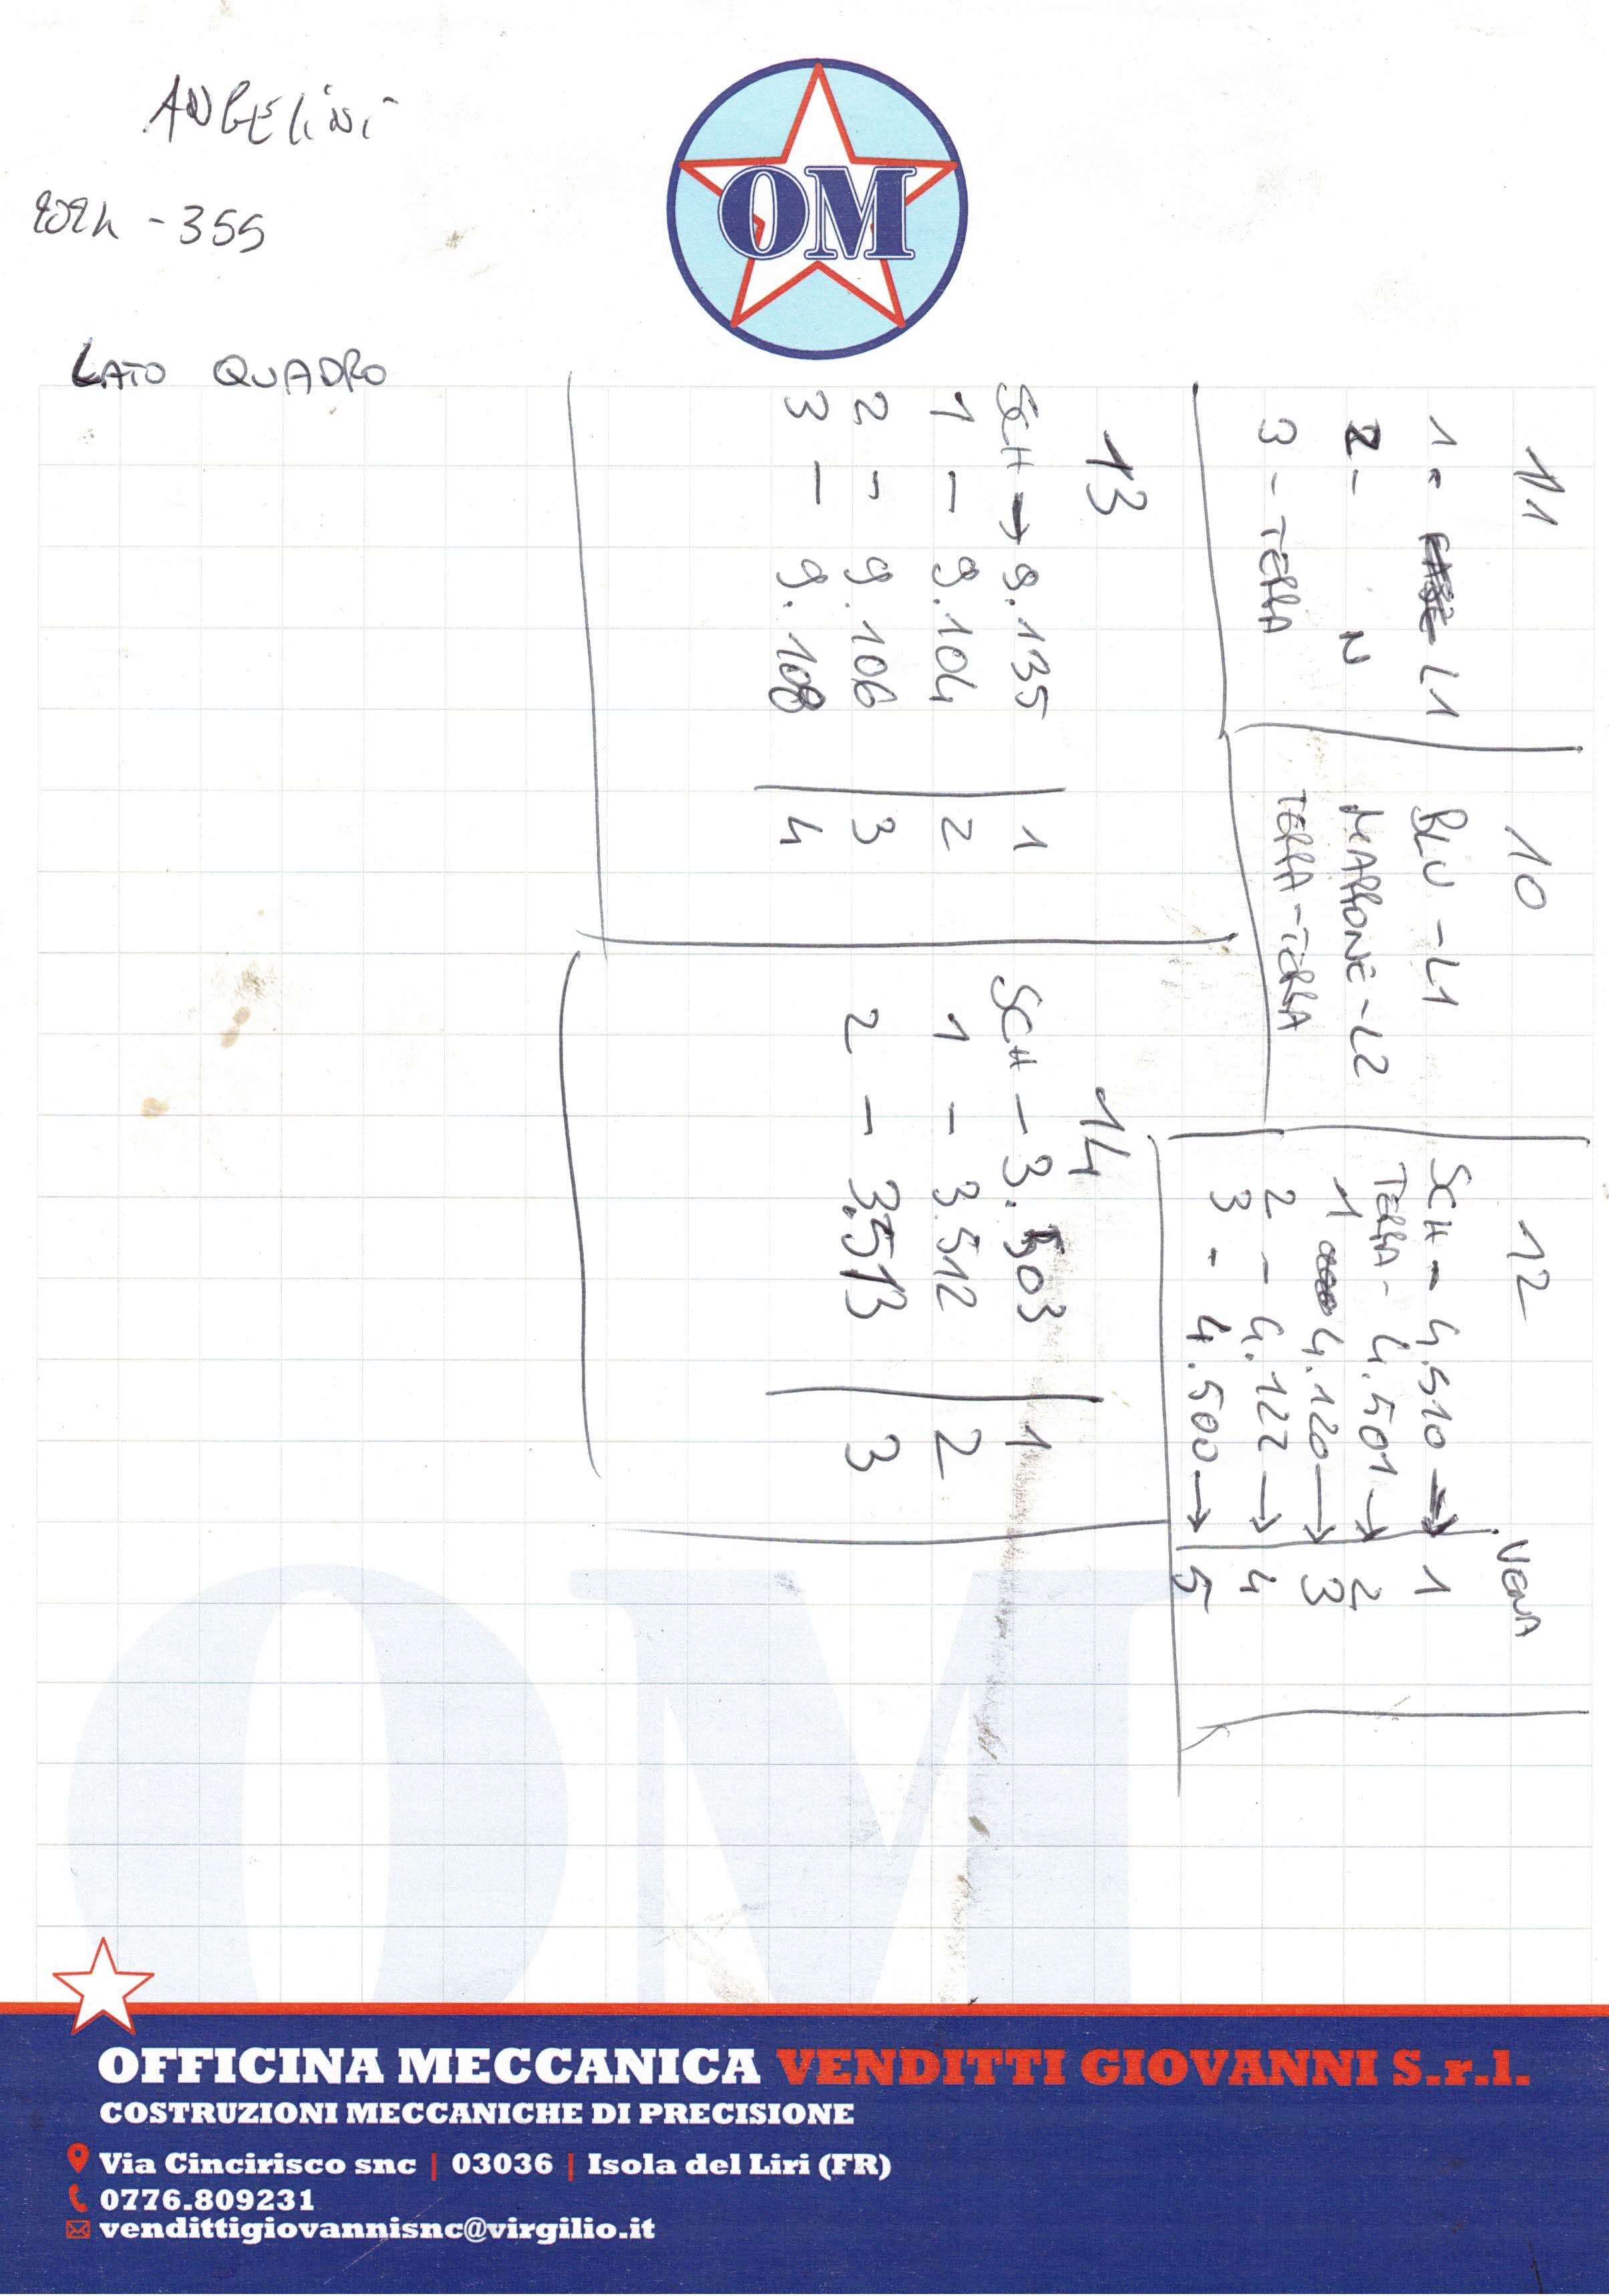 ANGELINI
2024 - 355
OM
LATO QUADRO
11
1 - L1
2 - N
3 - TERRA
10
BLU - L1
MARRONE - L2
TERRA - TERRA
12
VENA
SCH - 4.510 → 1
TERRA - 4.501 → 2
1 4.120 → 3
2 - 4.122 → 4
3 - 4.500 → 5
13
SCH → 9.135 1
1 - 9.104 2
2 - 9.106 3
3 - 9.108 4
14
SCH - 3.503 1
1 - 3.512 2
2 - 3.513 3
OM
OFFICINA MECCANICA VENDITTI GIOVANNI S.r.l.
COSTRUZIONI MECCANICHE DI PRECISIONE
Via Cincirisco snc | 03036 | Isola del Liri (FR)
0776.809231
vendittigiovannisnc@virgilio.it